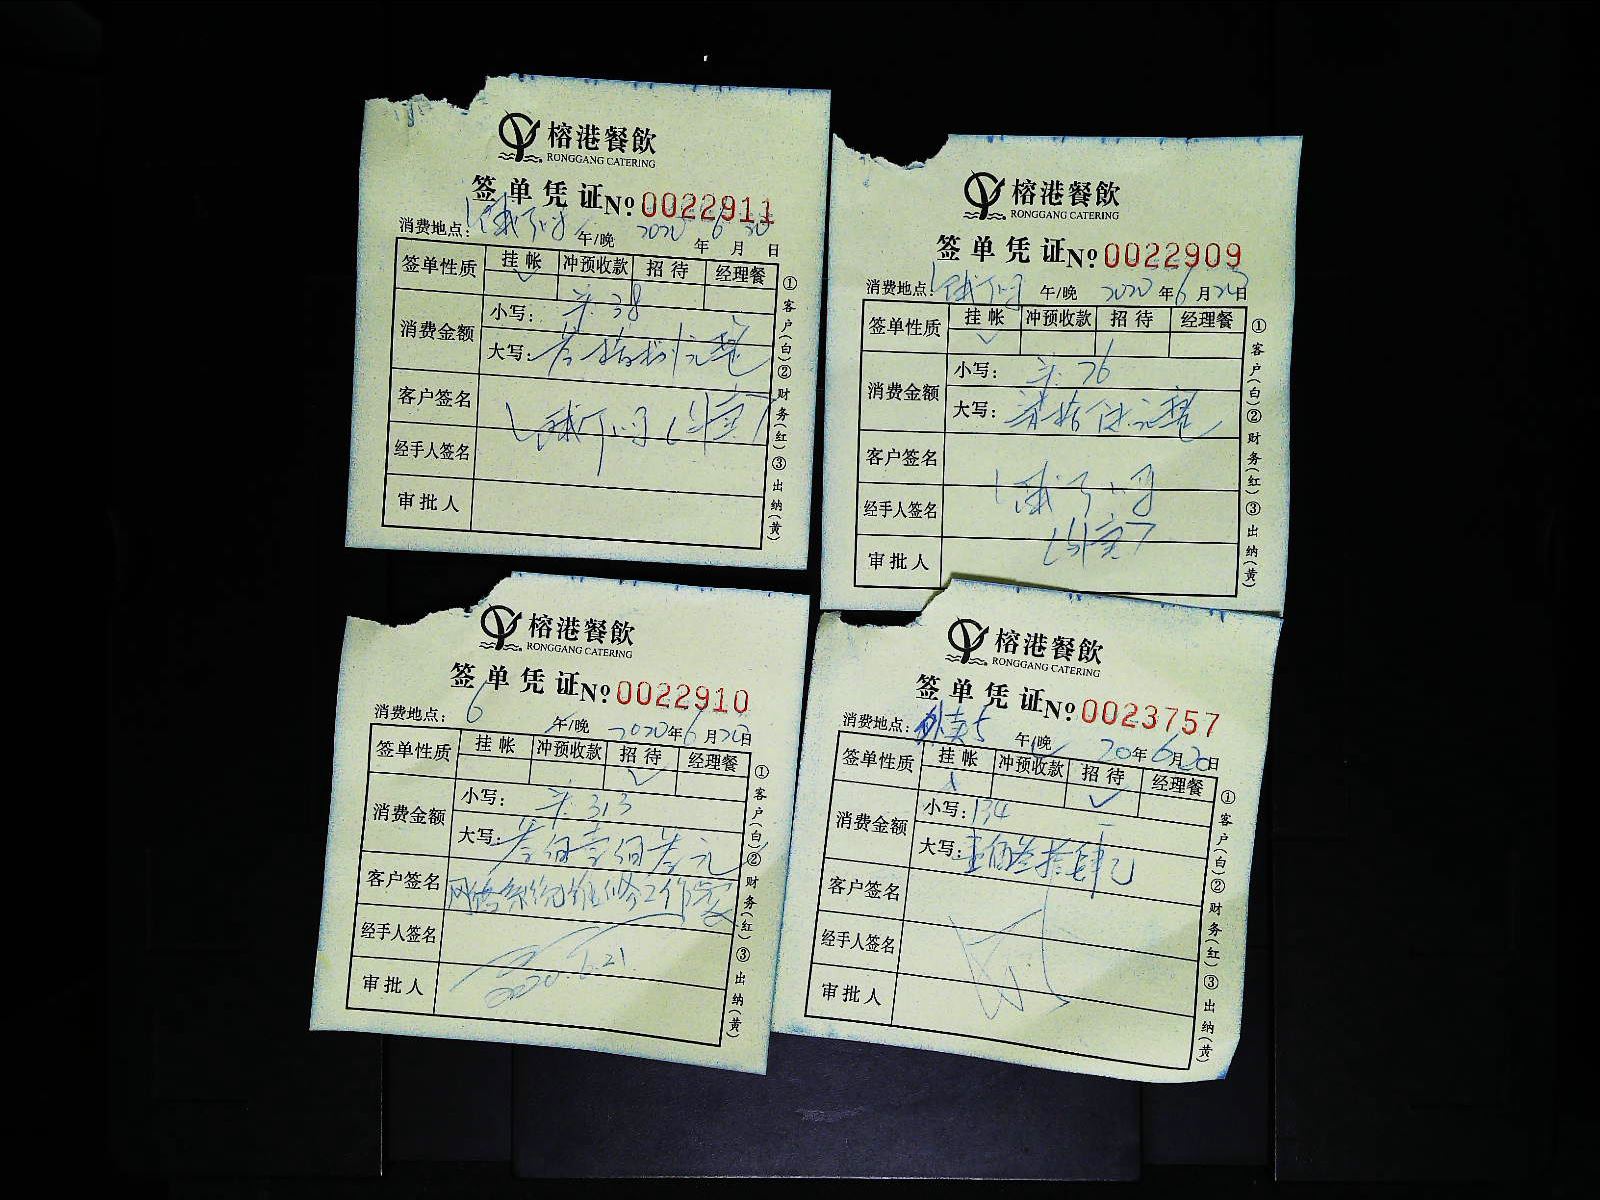 榕港餐飲
RONGGANG CATERING
签单凭证№0022911
消费地点：饿了吗 午/晚 2020年6月20日
签单性质 挂帐 冲预收款 招待 经理餐
消费金额
小写：38
大写：叁拾捌元整
客户签名
饿了吗
经手人签名
审批人
①客户(白)②财务(红)③出纳(黄)
榕港餐飲
RONGGANG CATERING
签单凭证№0022909
消费地点：饿了吗 午/晚 2020年6月20日
签单性质 挂帐 冲预收款 招待 经理餐
消费金额
小写：76
大写：柒拾陆元整
客户签名
经手人签名
饿了吗
审批人
①客户(白)②财务(红)③出纳(黄)
榕港餐飲
RONGGANG CATERING
签单凭证№0022910
消费地点：6 午/晚 2020年6月20日
签单性质 挂帐 冲预收款 招待 经理餐
消费金额
小写：313
大写：叁佰壹佰叁元
客户签名 网络系统维修工作餐
经手人签名
2020.6.21.
审批人
①客户(白)②财务(红)③出纳(黄)
榕港餐飲
RONGGANG CATERING
签单凭证№0023757
消费地点：外卖5 午/晚 20年6月20日
签单性质 挂帐 冲预收款 招待 经理餐
消费金额
小写：134
大写：壹佰叁拾肆元
客户签名
经手人签名
审批人
①客户(白)②财务(红)③出纳(黄)